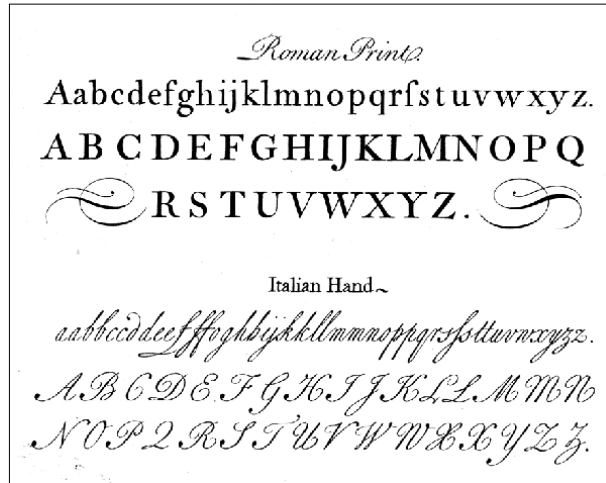 Roman Print.
Aabcdefghijklmnopqrſstuvwxyz.
A B C D E F G H I J K L M N O P Q
R S T U V W X Y Z .
Italian Hand
aabbccddeefffoghhijkkllmmnoppqrsſsttuvwxyzz.
A B C D E F G H I J K L L M M N
N O P Q R S T U V W W X X Y Z Z.